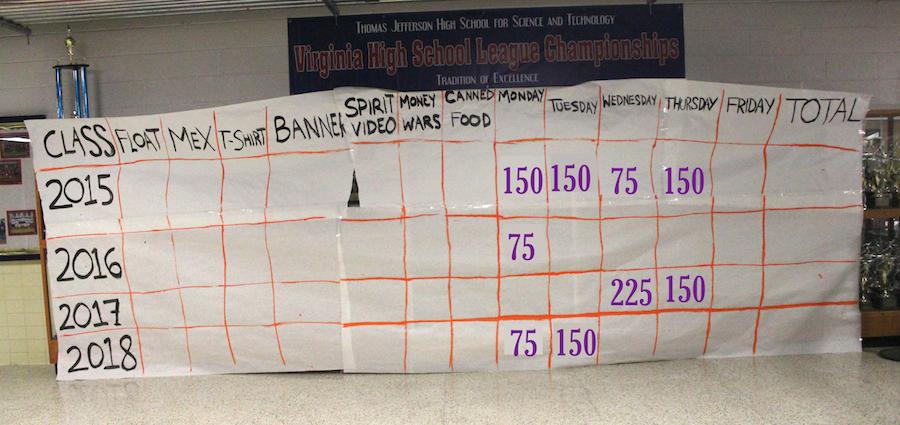 THOMAS JEFFERSON HIGH SCHOOL FOR SCIENCE AND TECHNOLOGY
Virginia High School League Championships
TRADITION OF EXCELLENCE
CLASS FLOAT MEX T-SHIRT BANNER SPIRIT VIDEO MONEY WARS CANNED FOOD MONDAY TUESDAY WEDNESDAY THURSDAY FRIDAY TOTAL
2015 150 150 75 150
2016 75
2017 225 150
2018 75 150